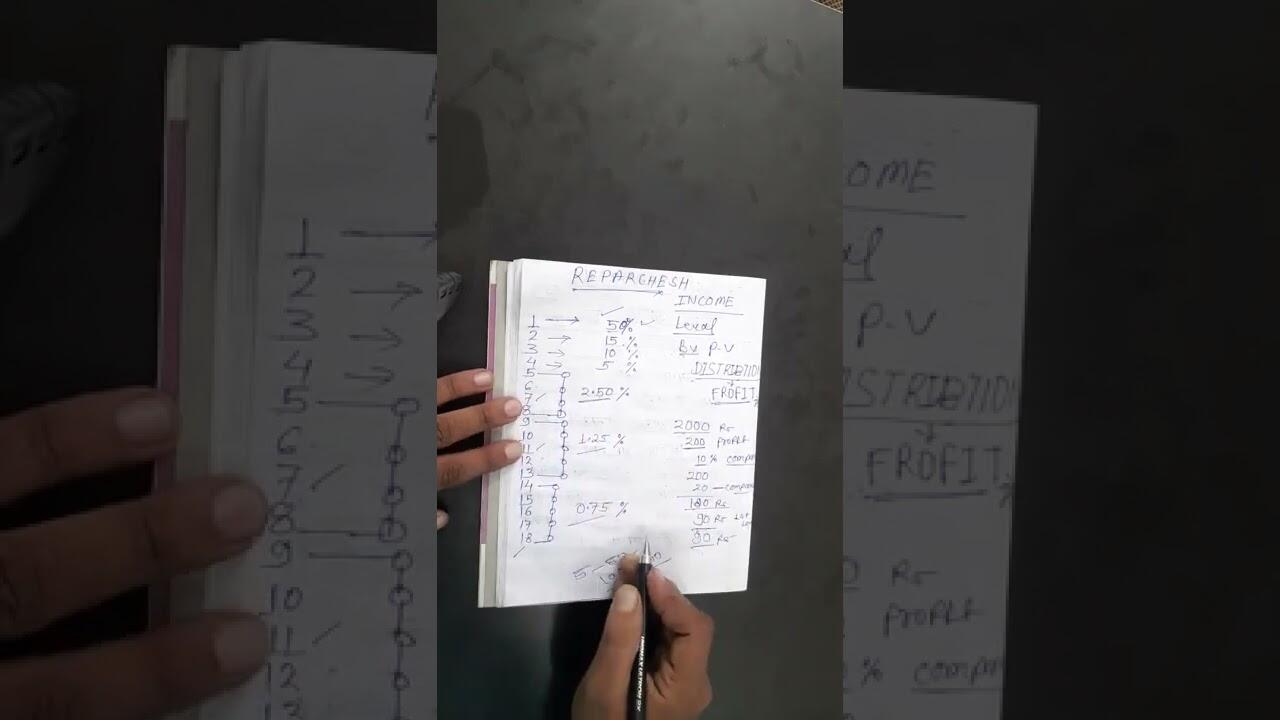 REPARCHESH
INCOME
1 → 50%
Level
2 → 15 %
By P-V
3 → 10 %
4 → 5 %
DISTRIBTION
5
6
7 2.50 %
FROFIT
8
9
2000 Rs
10 1.25 %
200 Profit
11
10% compan
12
200
13
20 — compan
14
180 Rs
15
16 0.75 %
90 Rs
17
90 Rs
18
5